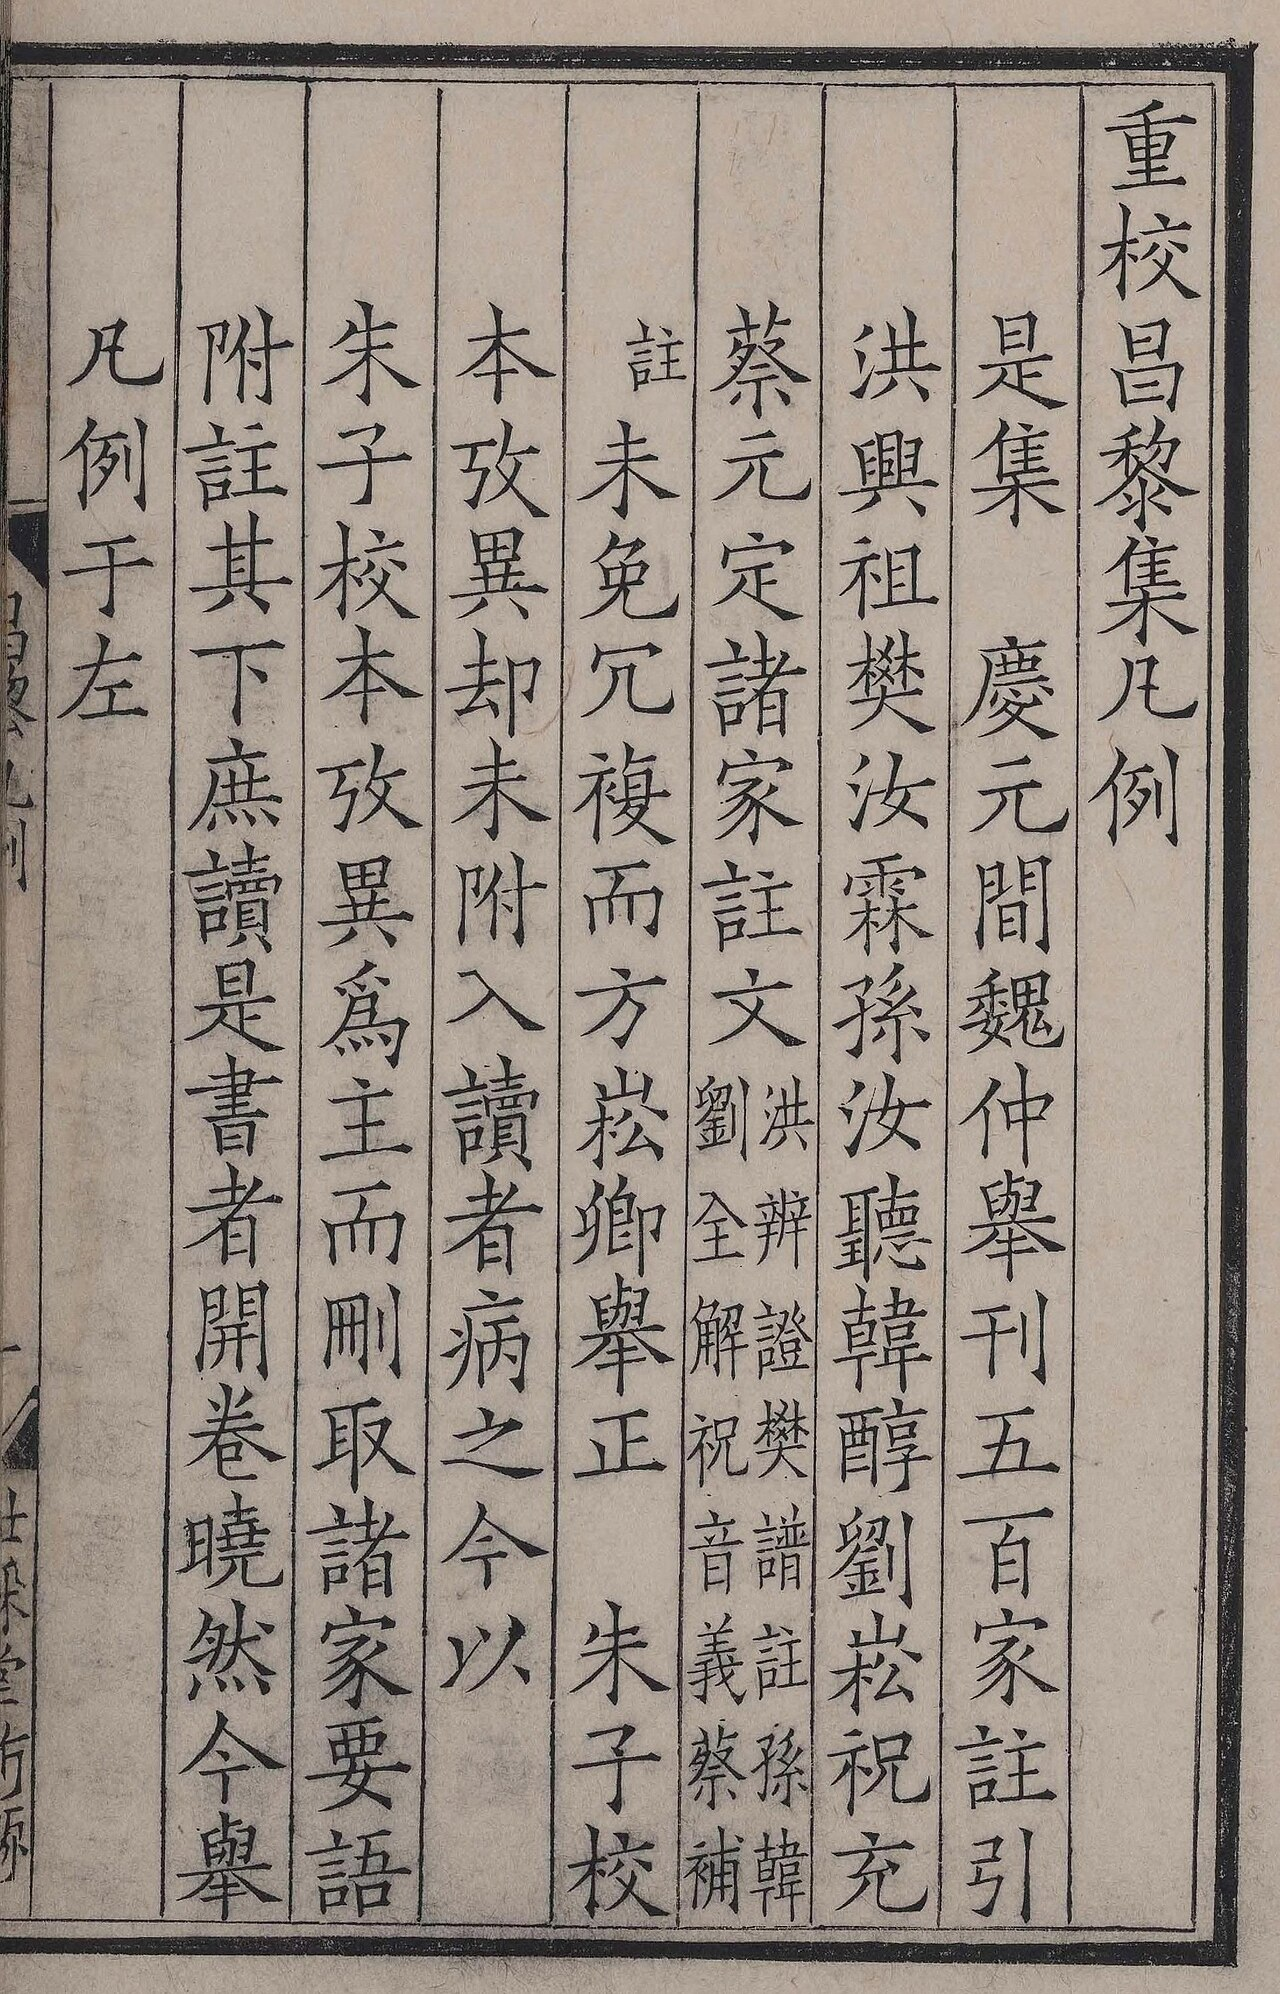 重校昌黎集凡例
是集　慶元間魏仲舉刊五百家註引
洪興祖樊汝霖孫汝聽韓醇劉崧祝充
蔡元定諸家註文洪辨證樊譜註孫韓劉全解祝音義蔡補
註未免冗複而方崧卿舉正　朱子校
本攷異却未附入讀者病之今以
朱子校本攷異爲主而刪取諸家要語
附註其下庶讀是書者開卷曉然今舉
凡例于左